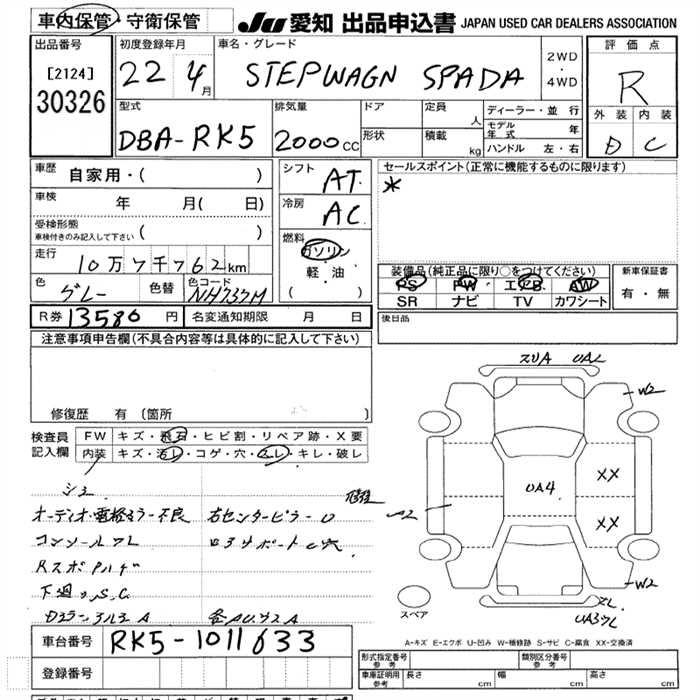 車内保管・守衛保管
JU 愛知 出品申込書 JAPAN USED CAR DEALERS ASSOCIATION
出品番号
[2124]
30326
初度登録年月
22 4月
車名・グレード
STEPWAGN SPADA
2WD
・
4WD
評価点
R
型式
DBA-RK5
排気量
2000cc
ドア
形状
定員
人
積載
kg
ディーラー・並行
モデル年式 年
ハンドル 左・右
外装 内装
D C
車歴 自家用・( )
車検 年 月( 日)
受検形態
車検付きのみ記入して下さい ( )
走行 10万7千762km
色 グレー 色替 色コード NH737M
シフト AT
冷房 AC
燃料
ガソリン
軽・油
( )
セールスポイント(正常に機能するものに限ります)
*
装備品(純正品に限り○をつけてください)
PS PW エアB AW
SR ナビ TV カワシート
新車保証書
有・無
R券 13580円 名変通知期限 月 日
後日品
注意事項申告欄(不具合内容等は具体的に記入して下さい)
修復歴 有 (箇所 )
検査員
記入欄
FW キズ・飛石・ヒビ割・リペア跡・X要
内装 キズ・汚レ・コゲ・穴・スレ・キレ・破レ
W2
UA4
XX
XX
W2
シミ
オーディオ・電格ミラー不良
コンソールワレ
下廻りS,C
スペア
A-キズ E-エクボ U-凹み W-補修跡 S-サビ C-腐食 XX-交換済
車台番号 RK5-1011633
登録番号
形式指定番号
参考
類別区分番号
参考
車庫証明用
参考
長さ cm 幅 cm 高さ cm